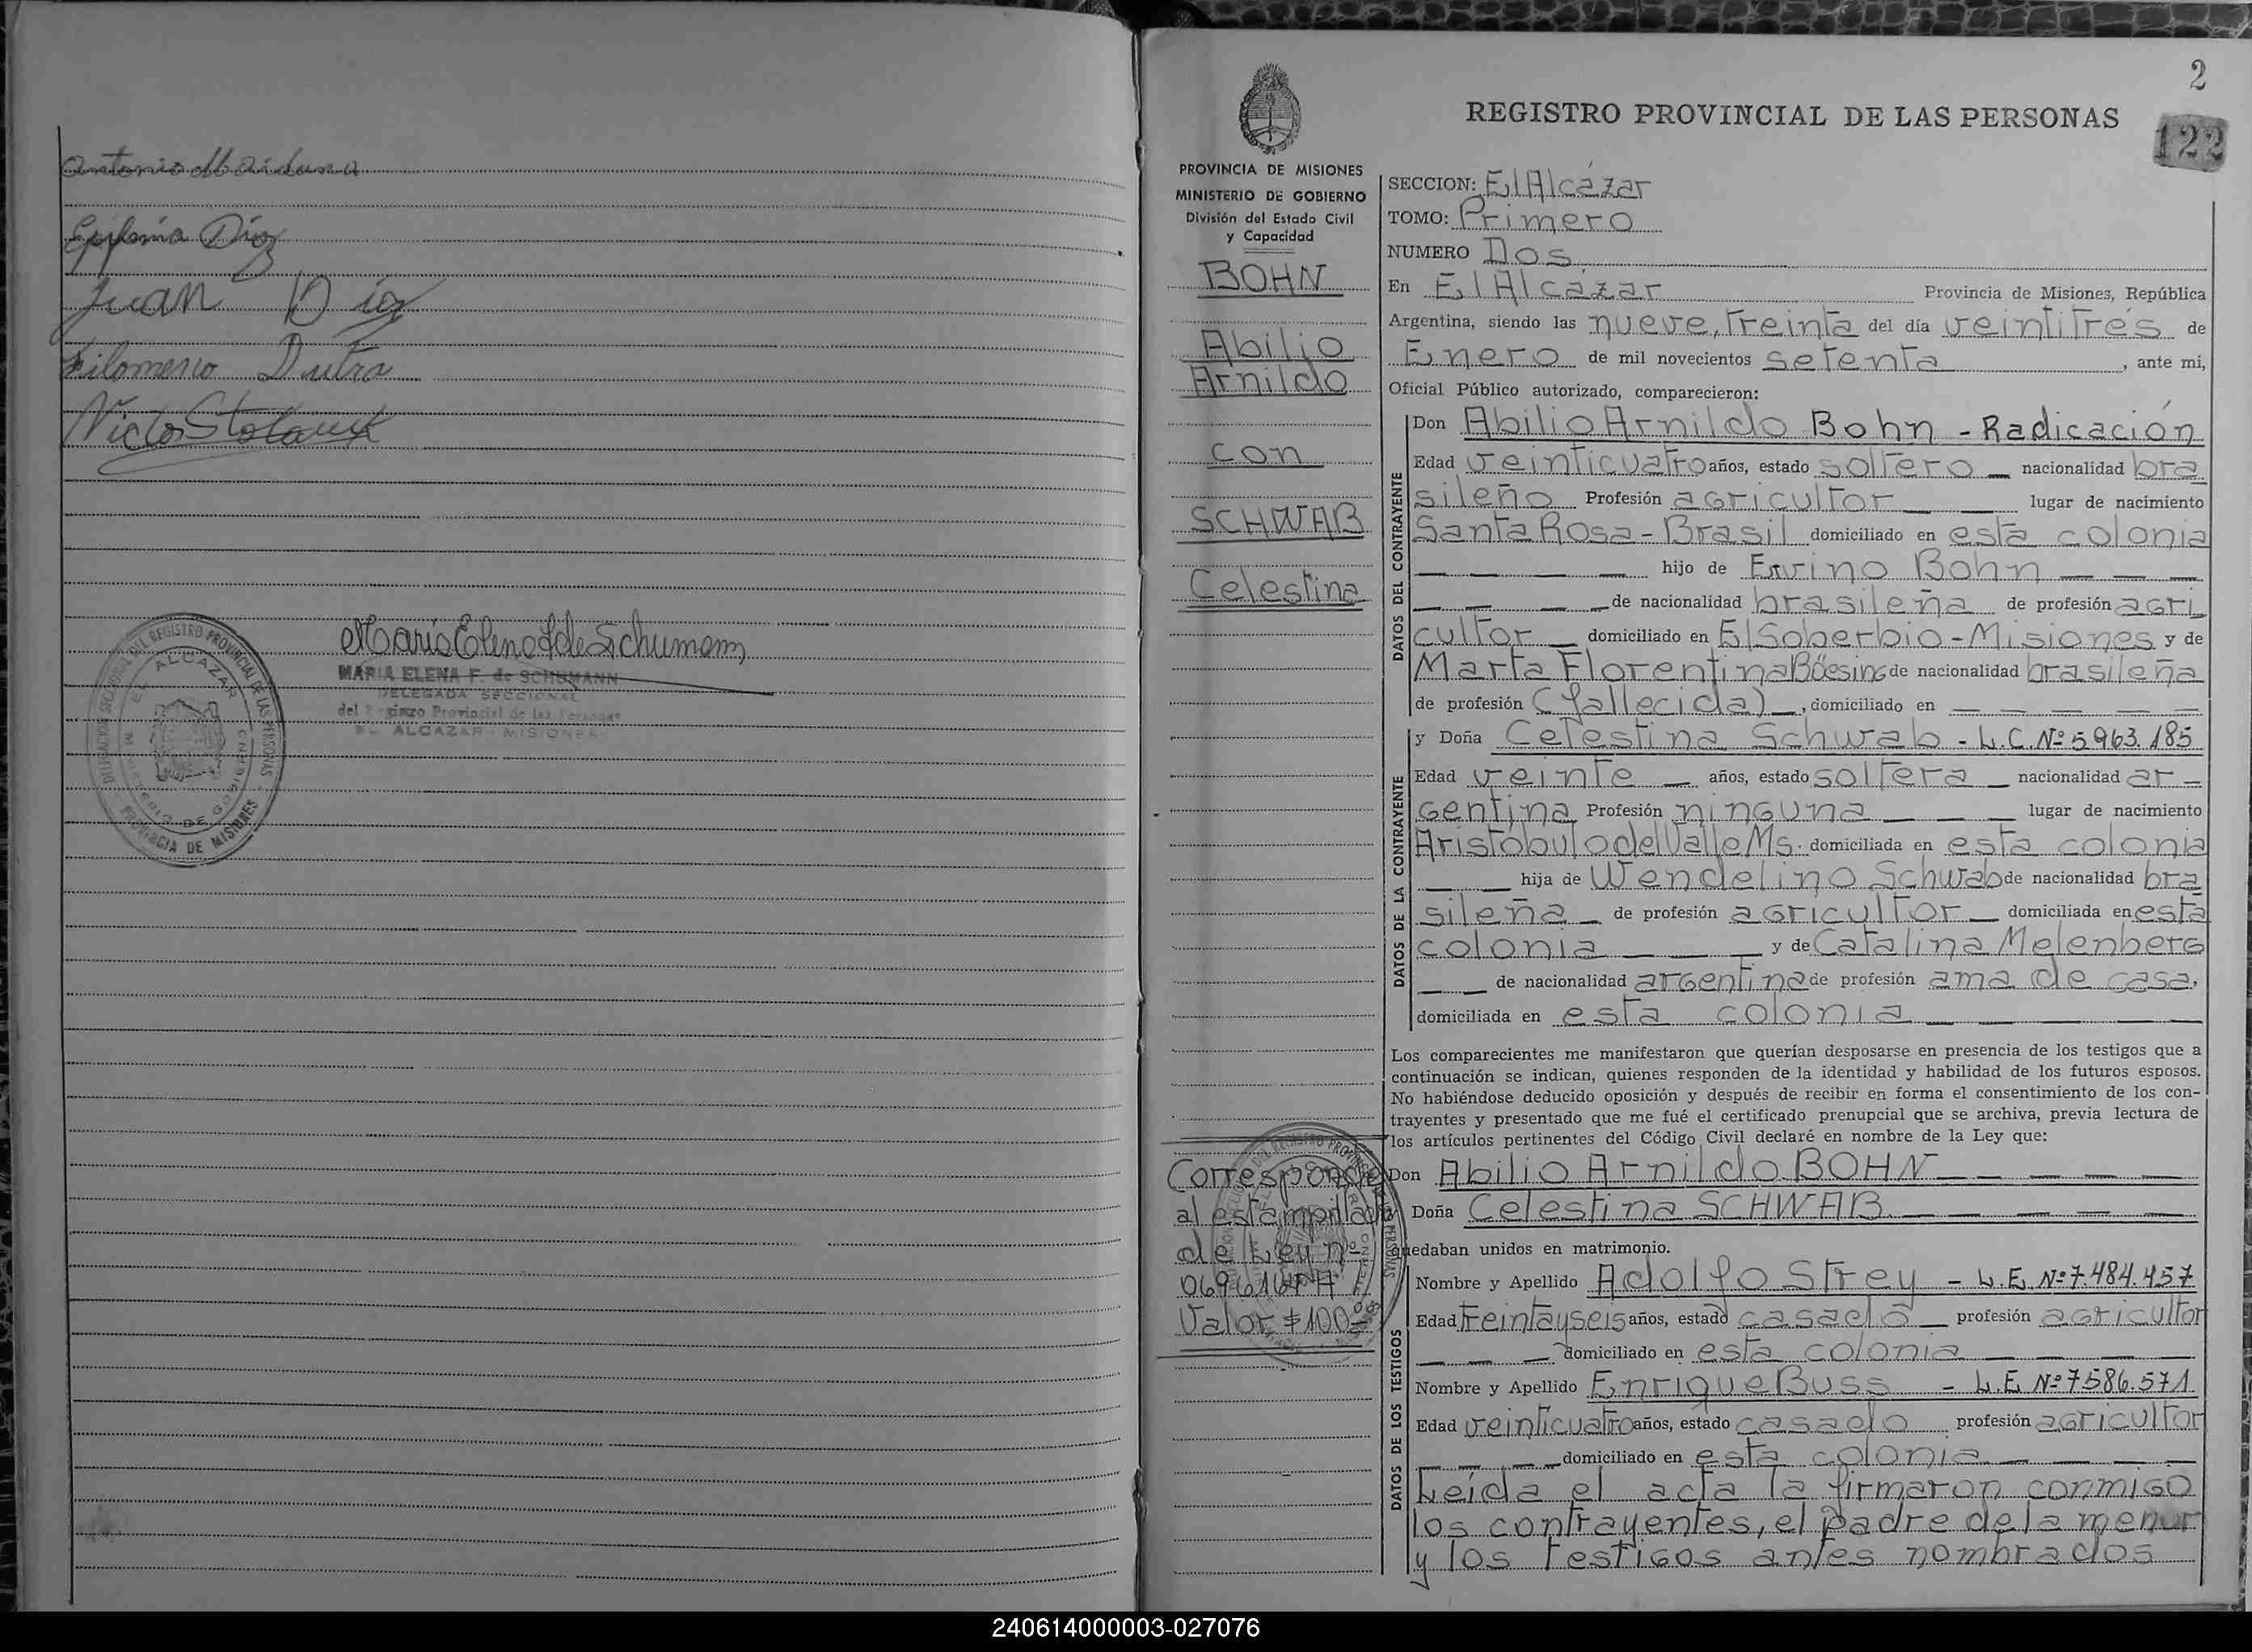 Antonio Maiduna
Epifania Díaz
Juan Díaz
Filomeno Dutra
Victor
Maria Elena F. de Schumann
MARIA ELENA F. de SCHUMANN
DELEGADA SECCIONAL
del Registro Provincial de las Personas
EL ALCAZAR - MISIONES
DELEGACION SECCIONAL DEL REGISTRO PROVINCIAL DE LAS PERSONAS
EL ALCAZAR
MINISTERIO DE GOBIERNO
PROVINCIA DE MISIONES
2
122
REGISTRO PROVINCIAL DE LAS PERSONAS
PROVINCIA DE MISIONES
MINISTERIO DE GOBIERNO
División del Estado Civil
y Capacidad
BOHN
Abilio
Arnildo
con
SCHWAB
Celestina
Corresponde
al estampillado
de Ley nº
Valor $100
SECCION: El Alcázar
TOMO: Primero
NUMERO Dos
En El Alcázar Provincia de Misiones, República
Argentina, siendo las nueve, treinta del día veintitrés de
Enero de mil novecientos setenta, ante mi,
Oficial Público autorizado, comparecieron:
DATOS DEL CONTRAYENTE
Don Abilio Arnildo Bohn - Radicación
Edad veinticuatro años, estado soltero — nacionalidad bra
sileño Profesión agricultor — — lugar de nacimiento
Santa Rosa - Brasil domiciliado en esta colonia
— — — — hijo de Ervino Bohn — — —
— — — — de nacionalidad brasileña de profesión agri
cultor — domiciliado en El Soberbio - Misiones y de
Marta Florentina Böesing de nacionalidad brasileña
de profesión (fallecida) —, domiciliado en — — — — —
DATOS DE LA CONTRAYENTE
y Doña Celestina Schwab - L.C. Nº 5.963.185
Edad veinte — años, estado soltera — nacionalidad ar -
gentina Profesión ninguna — — — lugar de nacimiento
Aristóbulo del Valle Ms. domiciliada en esta colonia
— — hija de Wendelino Schwab de nacionalidad bra
sileña — de profesión agricultor — domiciliada en esta
colonia — — — y de Catalina Melenberg
— — de nacionalidad argentina de profesión ama de casa,
domiciliada en esta colonia — — — — —
Los comparecientes me manifestaron que querían desposarse en presencia de los testigos que a
continuación se indican, quienes responden de la identidad y habilidad de los futuros esposos.
No habiéndose deducido oposición y después de recibir en forma el consentimiento de los con-
trayentes y presentado que me fué el certificado prenupcial que se archiva, previa lectura de
los artículos pertinentes del Código Civil declaré en nombre de la Ley que:
Don Abilio Arnildo BOHN — — — — —
Doña Celestina SCHWAB. — — — — —
quedaban unidos en matrimonio.
DATOS DE LOS TESTIGOS
Nombre y Apellido Adolfo Strey - L.E. Nº 7.484.457
Edad treinta y seis años, estado casado — profesión agricultor
— — — domiciliado en esta colonia — — — —
Nombre y Apellido Enrique Buss - L.E. Nº 7.586.571
Edad veinticuatro años, estado casado profesión agricultor
— — — — domiciliado en esta colonia — — — —
Leída el acta la firmaron conmigo
los contrayentes, el padre de la menor
y los testigos antes nombrados
240614000003-027076